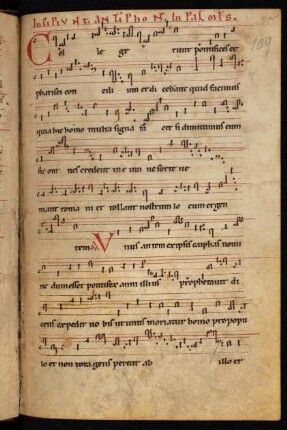 Incipiunt antiphone in palmis.
109
Col le ge runt pontifices et
pharisei con cili um et di cebant quid facimus
quia hic homo multa signa facit si dimittimus eum
sic om nes credent in e um ne forte ve
niant romani et tollant nostrum lo cum et gen
tem. V Unus autem ex ipsis caiphas nomi
ne dum esset pontifex anni illius prophetavit di
cens expedit vobis ut unus moriatur homo pro popu
lo et non tota gens pereat ab illo er